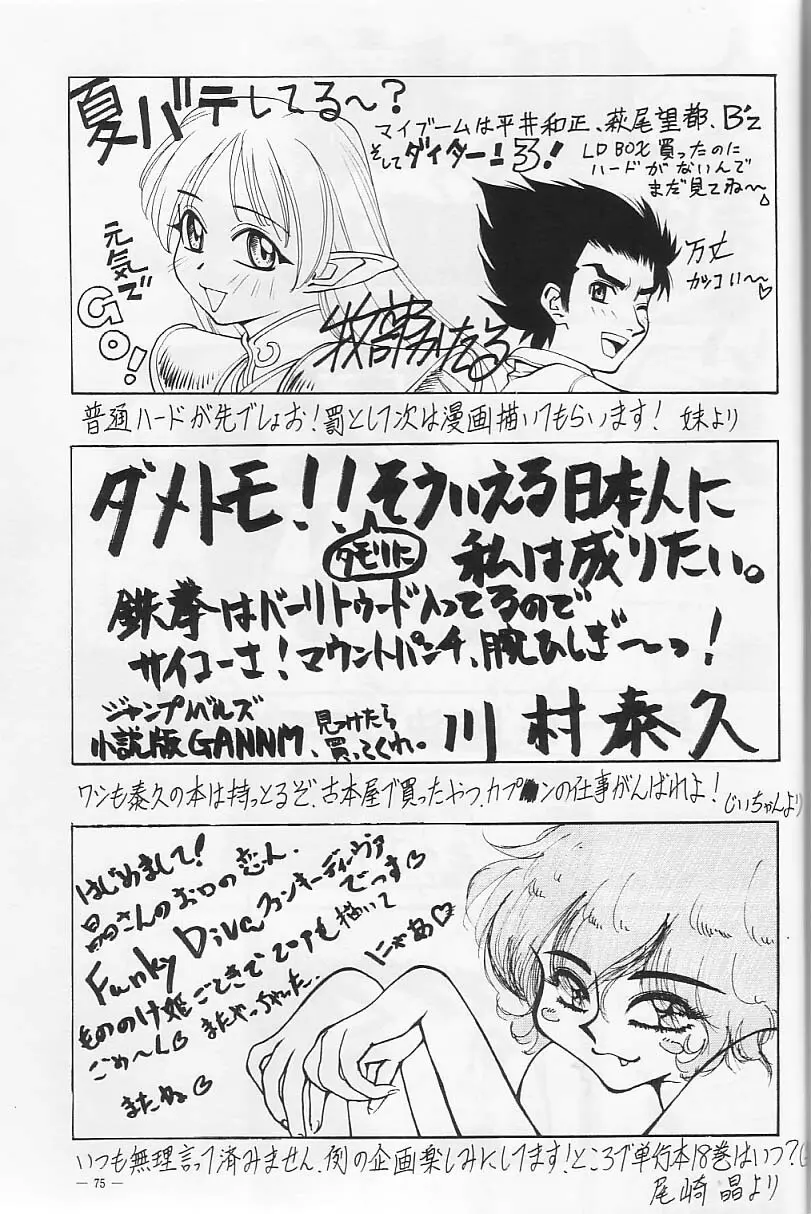 夏バテしてる〜?
マイブームは平井和正、萩尾望都、B'z
そしてダイターン3!
LD BOX 買ったのに
ハードがないんで
まだ見てね〜
万丈
カッコいい〜♡
元気で
GO!
普通ハードが先でしょお!罰として次は漫画描いてもらいます! 妹より
ダメトモ!!そういえる日本人に
タモリに
私は成りたい。
鉄拳はバーリトゥード入ってるので
サイコーさ!マウントパンチ、腕ひしぎ〜っ!
ジャンプノベルズ
小説版GANNM、見つけたら
買ってくれ。
川村泰久
ワシも泰久の本は持っとるぞ、古本屋で買ったやつ、カプ ンの仕事がんばれよ! じいちゃんより
はじめまして!
晶さんのお口の恋人、
Funky Diva ファンキーディヴァ
でっす♡
もののけ姫ごときで
描いて
にゃあ♡
ごめ〜ん♡ またやっちゃった。
またね♡
いつも無理言って済みません、例の企画楽しみにしてます!ところで単行本18巻はいつ?
尾崎 晶より
— 75 —